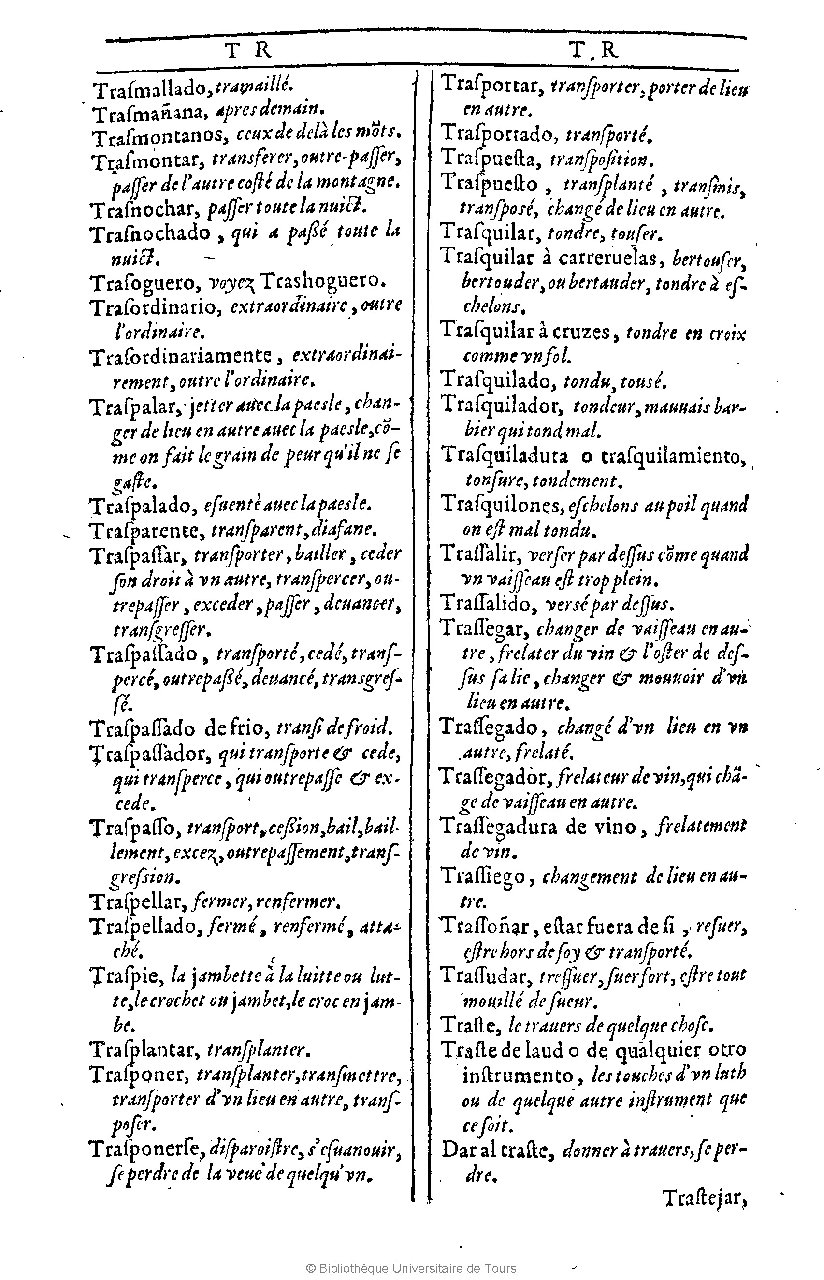 T R
Traſmallado, tramaillé.
Traſmañana, apres demain.
Traſmontanos, ceux de delà les mōts.
Traſmontar, transferer, outre-paſſer,
paſſer de l'autre coſté de la montagne.
Traſnochar, paſſer toute la nuict.
Traſnochado, qui a paßé toute la
nuict.
Traſoguero, voyez Trashoguero.
Traſordinario, extraordinaire, outre
l'ordinaire.
Traſordinariamente, extraordinai-
rement, outre l'ordinaire.
Traſpalar, jetter auec la paesle, chan-
ger de lieu en autre auec la paesle, cō-
me on fait le grain de peur qu'il ne ſe
gaſte.
Traſpalado, eſuenté auec la paesle.
Traſparente, tranſparent, diafane.
Traſpaſſar, tranſporter, bailler, ceder
ſon droit à vn autre, tranſpercer, ou-
trepaſſer, exceder, paſſer, deuancer,
tranſgreſſer.
Traſpaſſado, tranſporté, cedé, tranſ-
percé, outrepaßé, deuancé, transgreſ-
ſé.
Traſpaſſado de frio, tranſi de froid.
Traſpaſſador, qui tranſporte & cede,
qui tranſperce, qui outrepaſſe & ex-
cede.
Traſpaſſo, tranſport, ceßion, bail, bail-
lement, excez, outrepaſſement, tranſ-
greſsion.
Traſpellar, fermer, renfermer.
Traſpellado, fermé, renfermé, atta-
ché.
Traſpie, la jambette à la luitte ou lut-
te, le crochet ou jambet, le croc en jam-
be.
Traſplantar, tranſplanter.
Traſponer, tranſplanter, tranſmettre,
tranſporter d'vn lieu en autre, tranſ-
poſer.
Traſponerſe, diſparoiſtre, s'eſuanouir,
ſe perdre de la veuë de quelqu'vn.
T R
Traſportar, tranſporter, porter de lieu
en autre.
Traſportado, tranſporté.
Traſpueſta, tranſpoſition.
Traſpueſto, tranſplanté, tranſmis,
tranſposé, changé de lieu en autre.
Traſquilar, tondre, touſer.
Traſquilar à carreruelas, bertouſer,
bertouder, ou bertauder, tondre à eſ-
chelons.
Traſquilar à cruzes, tondre en croix
comme vn fol.
Traſquilado, tondu, tousé.
Traſquilador, tondeur, mauuais bar-
bier qui tond mal.
Traſquiladura o traſquilamiento,
tonſure, tondement.
Traſquilones, eſchelons au poil quand
on eſt mal tondu.
Traſſalir, verſer par deſſus cōme quand
vn vaiſſeau eſt trop plein.
Traſſalido, versé par deſſus.
Traſſegar, changer de vaiſſeau en au-
tre, frelater du vin & l'oſter de deſ-
ſus ſa lie, changer & mouuoir d'vn
lieu en autre.
Traſſegado, changé d'vn lieu en vn
autre, frelaté.
Traſſegador, frelateur de vin, qui chā-
ge de vaiſſeau en autre.
Traſſegadura de vino, frelatement
de vin.
Traſſiego, changement de lieu en au-
tre.
Traſſoñar, eſtar fuera de ſi, reſuer,
eſtre hors de ſoy & tranſporté.
Traſſudar, treſſuer, ſuer fort, eſtre tout
mouillé de ſueur.
Traſte, le trauers de quelque choſe.
Traſte de laud o de qualquier otro
inſtrumento, les touches d'vn luth
ou de quelque autre inſtrument que
ce ſoit.
Dar al traſte, donner à trauers, ſe per-
dre.
Traſtejar,
© Bibliothèque Universitaire de Tours